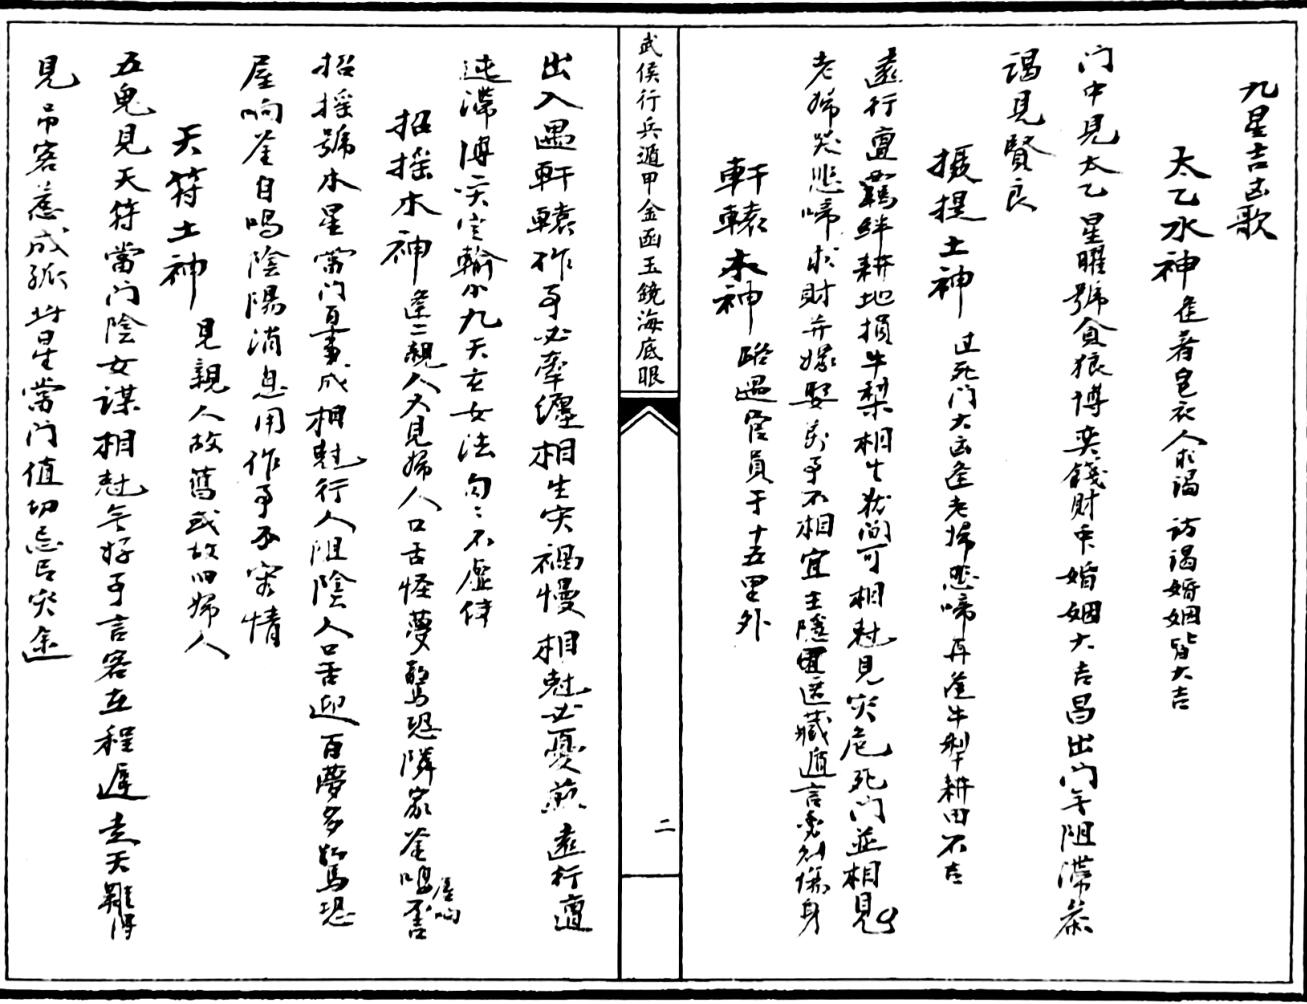 九星吉凶歌
太乙水神 逢著皂衣人求謁 訪謁婚姻皆大吉
门中見太乙 星曜號貪狼 博奕錢財中 婚姻大吉昌 出门無阻滯 茶
謁見賢良
摄提土神 过死门大凶逢老婦悲啼再逢牛犁耕田不吉
遠行遭羈絆 耕地損牛犁 相生犹间可 相尅見灾危 死门並相見
老婦哭悲啼 求財并嫁娶 萬事不相宜 主隱 匿藏遁言 傷身
軒轅木神 路遇官員于十五里外
武侯行兵遁甲金函玉鏡海底眼
二
出入遇軒轅 作事必牽纏 相生灾禍慢 相尅必憂煎 遠行遭
迍滯 博奕定輸 九天玄女法 句々不虛傳
招摇木神 逢二親人又見婦人口舌怪夢驚恐隣家釜鳴屋响
招摇號木星 當门百事成 相尅行人阻 陰人口舌迎 百夢多驚恐
屋响釜自鳴 陰陽消息用 作事不容情
天符土神 見親人故舊或故旧婦人
五鬼見天符 當门陰女謀 相尅無好事 言客在程遲 走天難得
見 吊客惹成孤 此星當门值 切忌 灾途